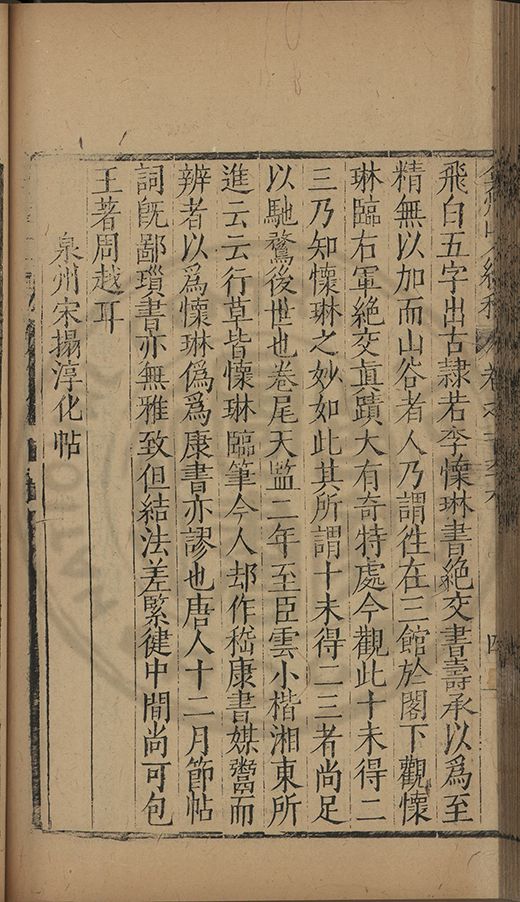 飛白五字出古隷若李懷琳書絶交書壽承以爲至
精無以加而山谷者人乃謂徃在三館於閣下觀懷
琳臨右軍絶交眞蹟大有奇特處今觀此十未得二
三乃知懷琳之妙如此其所謂十未得二三者尚足
以馳騖後世也卷尾天監二年至臣雲小楷湘東所
進云云行草皆懷琳臨筆今人却作嵇康書媒鬻而
辨者以爲懷琳僞爲康書亦謬也唐人十二月節帖
詞旣鄙瑣書亦無雅致但結法差緊徤中間尚可包
王著周越耳
泉州宋搨淳化帖